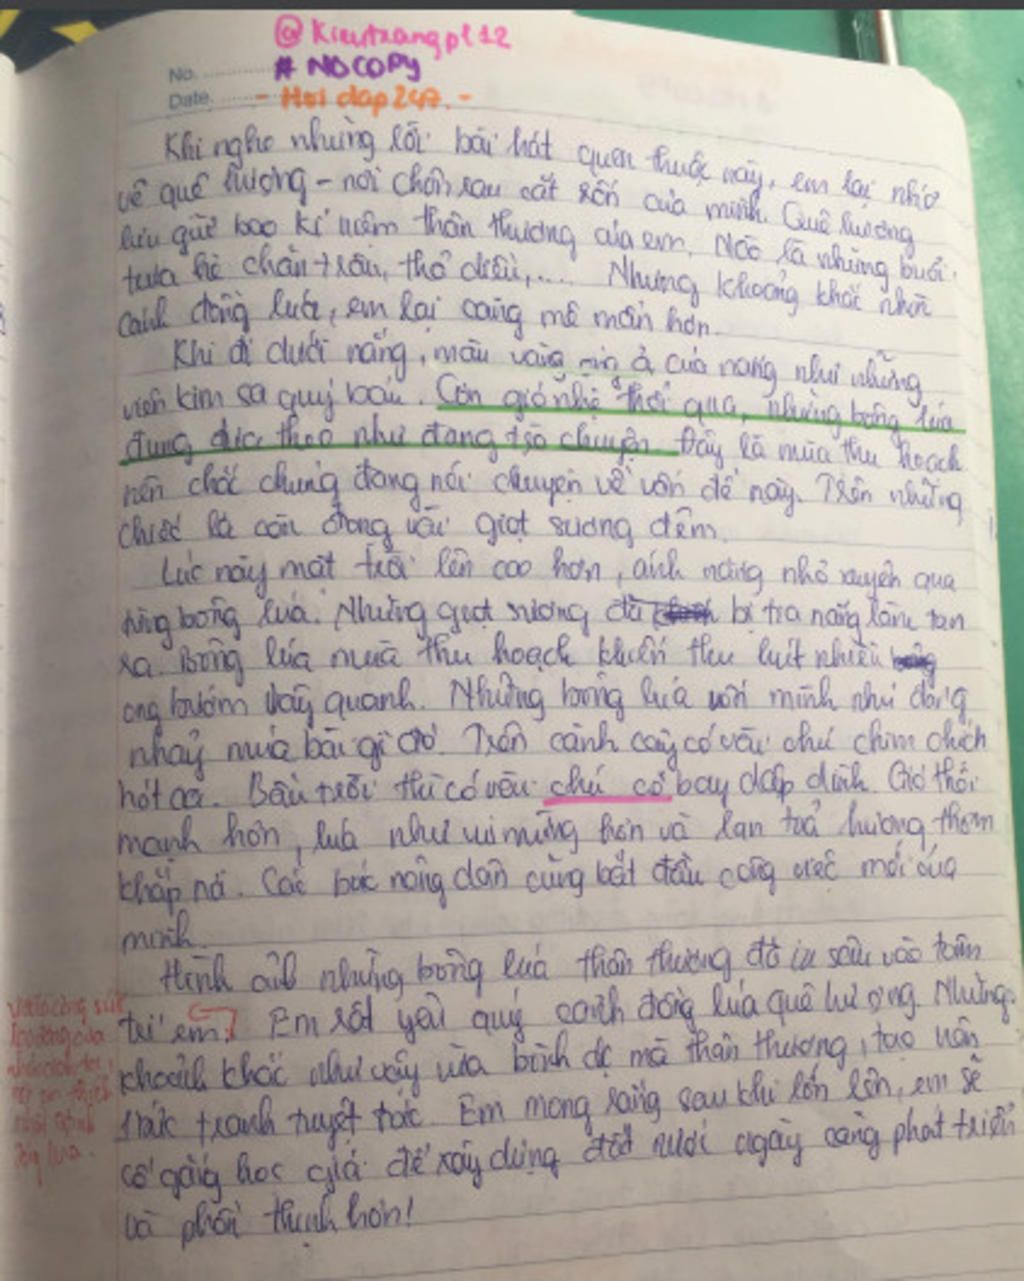 @Kieutrangpt12
No. # NOCOPY
Date. - Hoi dap 247. -
Khi nghe những lời bài hát quen thuộc này, em lại nhớ
về quê hương - nơi chôn rau cắt rốn của mình. Quê hương
lưu giữ bao kí niệm thân thương của em. Nào là những buổi
trưa hè chăn trâu, thả diều,.... Nhưng khoảng khắc nhìn
cánh đồng lúa, em lại càng mê mẩn hơn.
Khi đi dưới nắng, màu vàng của nắng như những
viên kim sa quý báu. Cơn gió nhẹ thổi qua, những bông lúa
đung đưa theo như đang trò chuyện. Đây là mùa thu hoạch
nên chắc chúng đang nói chuyện về vấn đề này. Trên những
chiếc lá còn đọng vài giọt sương đêm.
Lúc này mặt trời lên cao hơn, ánh nắng nhỏ xuyên qua
từng bông lúa. Những giọt sương đã bị tia nắng làm tan
ra. Bông lúa mùa thu hoạch khiến thu hút nhiều
ong bướm vây quanh. Những bông lúa uốn mình như đang
nhảy múa bài gì đó. Trên cành cây có vài chú chim chích
hót ca. Bầu trời thì có vài chú cò bay dập dình. Gió thổi
mạnh hơn, lúa như vui mừng hơn và lan toả hương thơm
khắp nơi. Các bác nông dân cũng bắt đầu công việc mới của
mình.
Hình ảnh những bông lúa thân thương đã in sâu vào tâm
trí em. Em rất yêu quý cánh đồng lúa quê hương. Những
khoảnh khắc như vậy vừa bình dị mà thân thương, tạo nên
bức tranh tuyệt tác. Em mong rằng sau khi lớn lên, em sẽ
cố gắng học giỏi để xây dựng đất nước ngày càng phát triển
và phồn thịnh hơn!